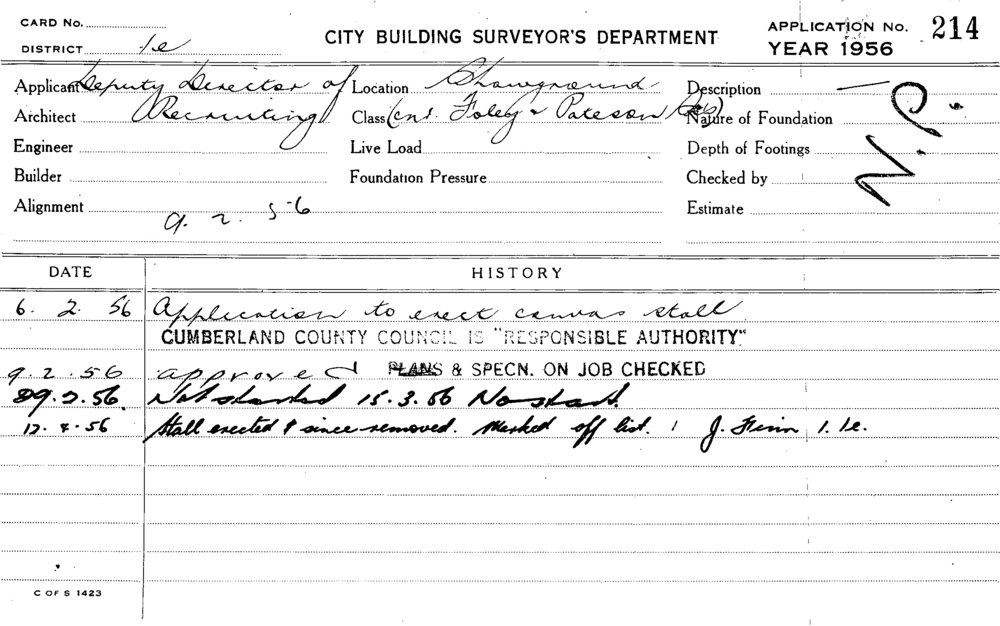 CARD No.
DISTRICT 1e
CITY BUILDING SURVEYOR'S DEPARTMENT
APPLICATION No. 214
YEAR 1956
Applicant Deputy Director of Location Showground Description
Architect Recruiting Class (cnr. Foley & Pateson Rds) Nature of Foundation
Engineer Live Load Depth of Footings
Builder Foundation Pressure Checked by
Alignment 9. 2. 56 Estimate
DATE HISTORY
6. 2. 56 Application to erect canvas stall
CUMBERLAND COUNTY COUNCIL IS "RESPONSIBLE AUTHORITY"
9. 2. 56 approved PLANS & SPECN. ON JOB CHECKED
29.2.56. Not started 15.3.56 No start.
17.4.56 Stall erected & since removed. Marked off list. J. 1.1e.
C OF S 1423